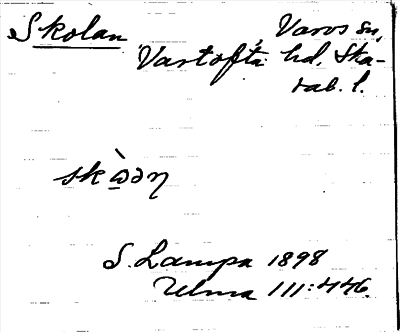 Skolan Varvs sn,
Vartofta hd, Ska-
rab. l.
skò̲ən
S. Lampa 1898
Ulma 111:446.